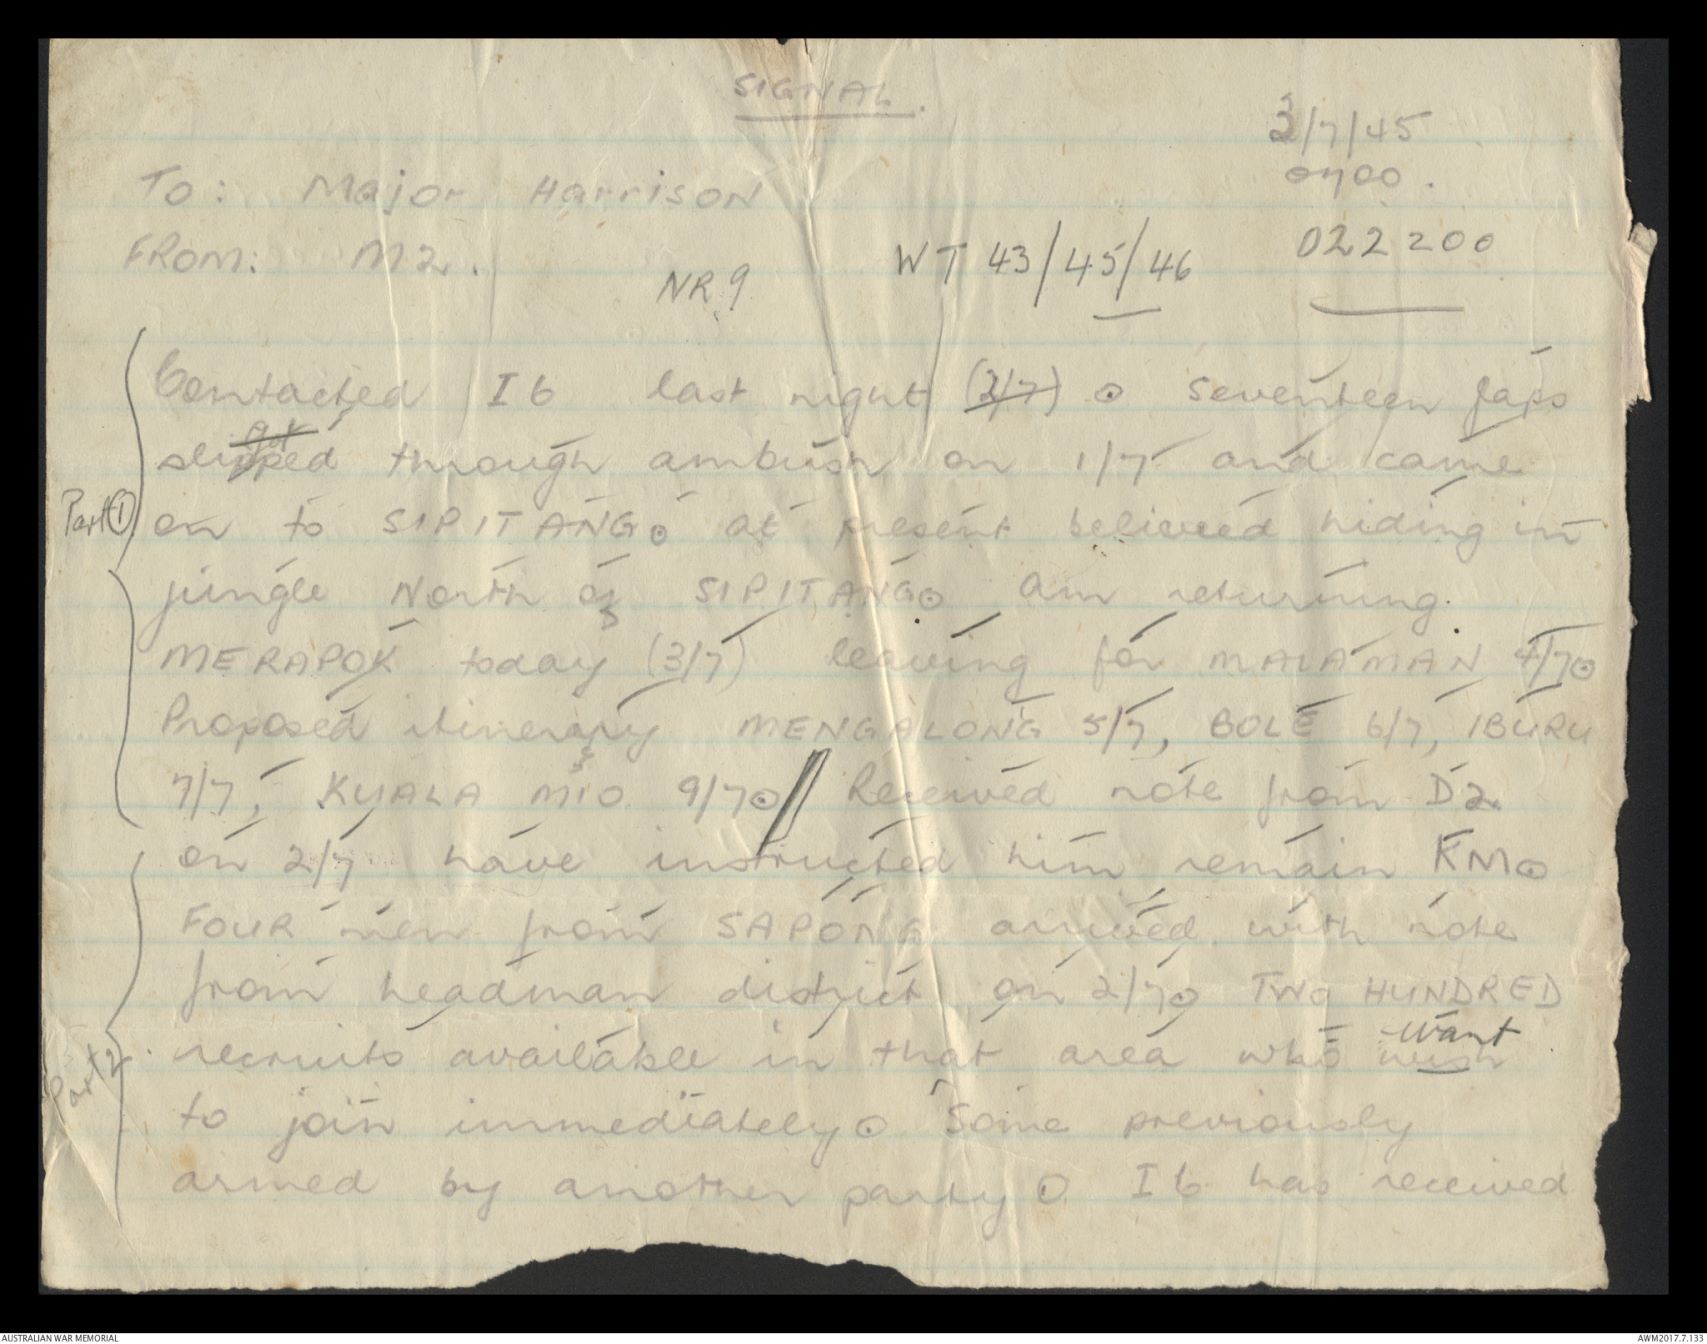 SIGNAL.
3/7/45
0700.
To: Major Harrison
022200
FROM: M2.
NR 9
WT 43/45/46
Contacted I6 last night (2/7) ⊙ Seventeen Japs
got
slipped through ambush on 1/7 and came
Part ①
on to SIPITANG ⊙ at present believed hiding in
jungle North of SIPITANG ⊙ Am returning
MERAPOK today (3/7) leaving for MALAMAN 4/7 ⊙
Proposed itinerary MENGALONG 5/7, BOLE 6/7, IBURU
7/7, KUALA MIO 9/7 ⊙ // Received note from D2
on 2/7 have instructed him remain KM ⊙
FOUR men from SAPONG arrived with note
from headman district on 2/7 ⊙ TWO HUNDRED
want
recruits available in that area who wish
Part 2
to join immediately ⊙ Some previously
armed by another party ⊙ I6 has received
AUSTRALIAN WAR MEMORIAL
AWM2017.7.133